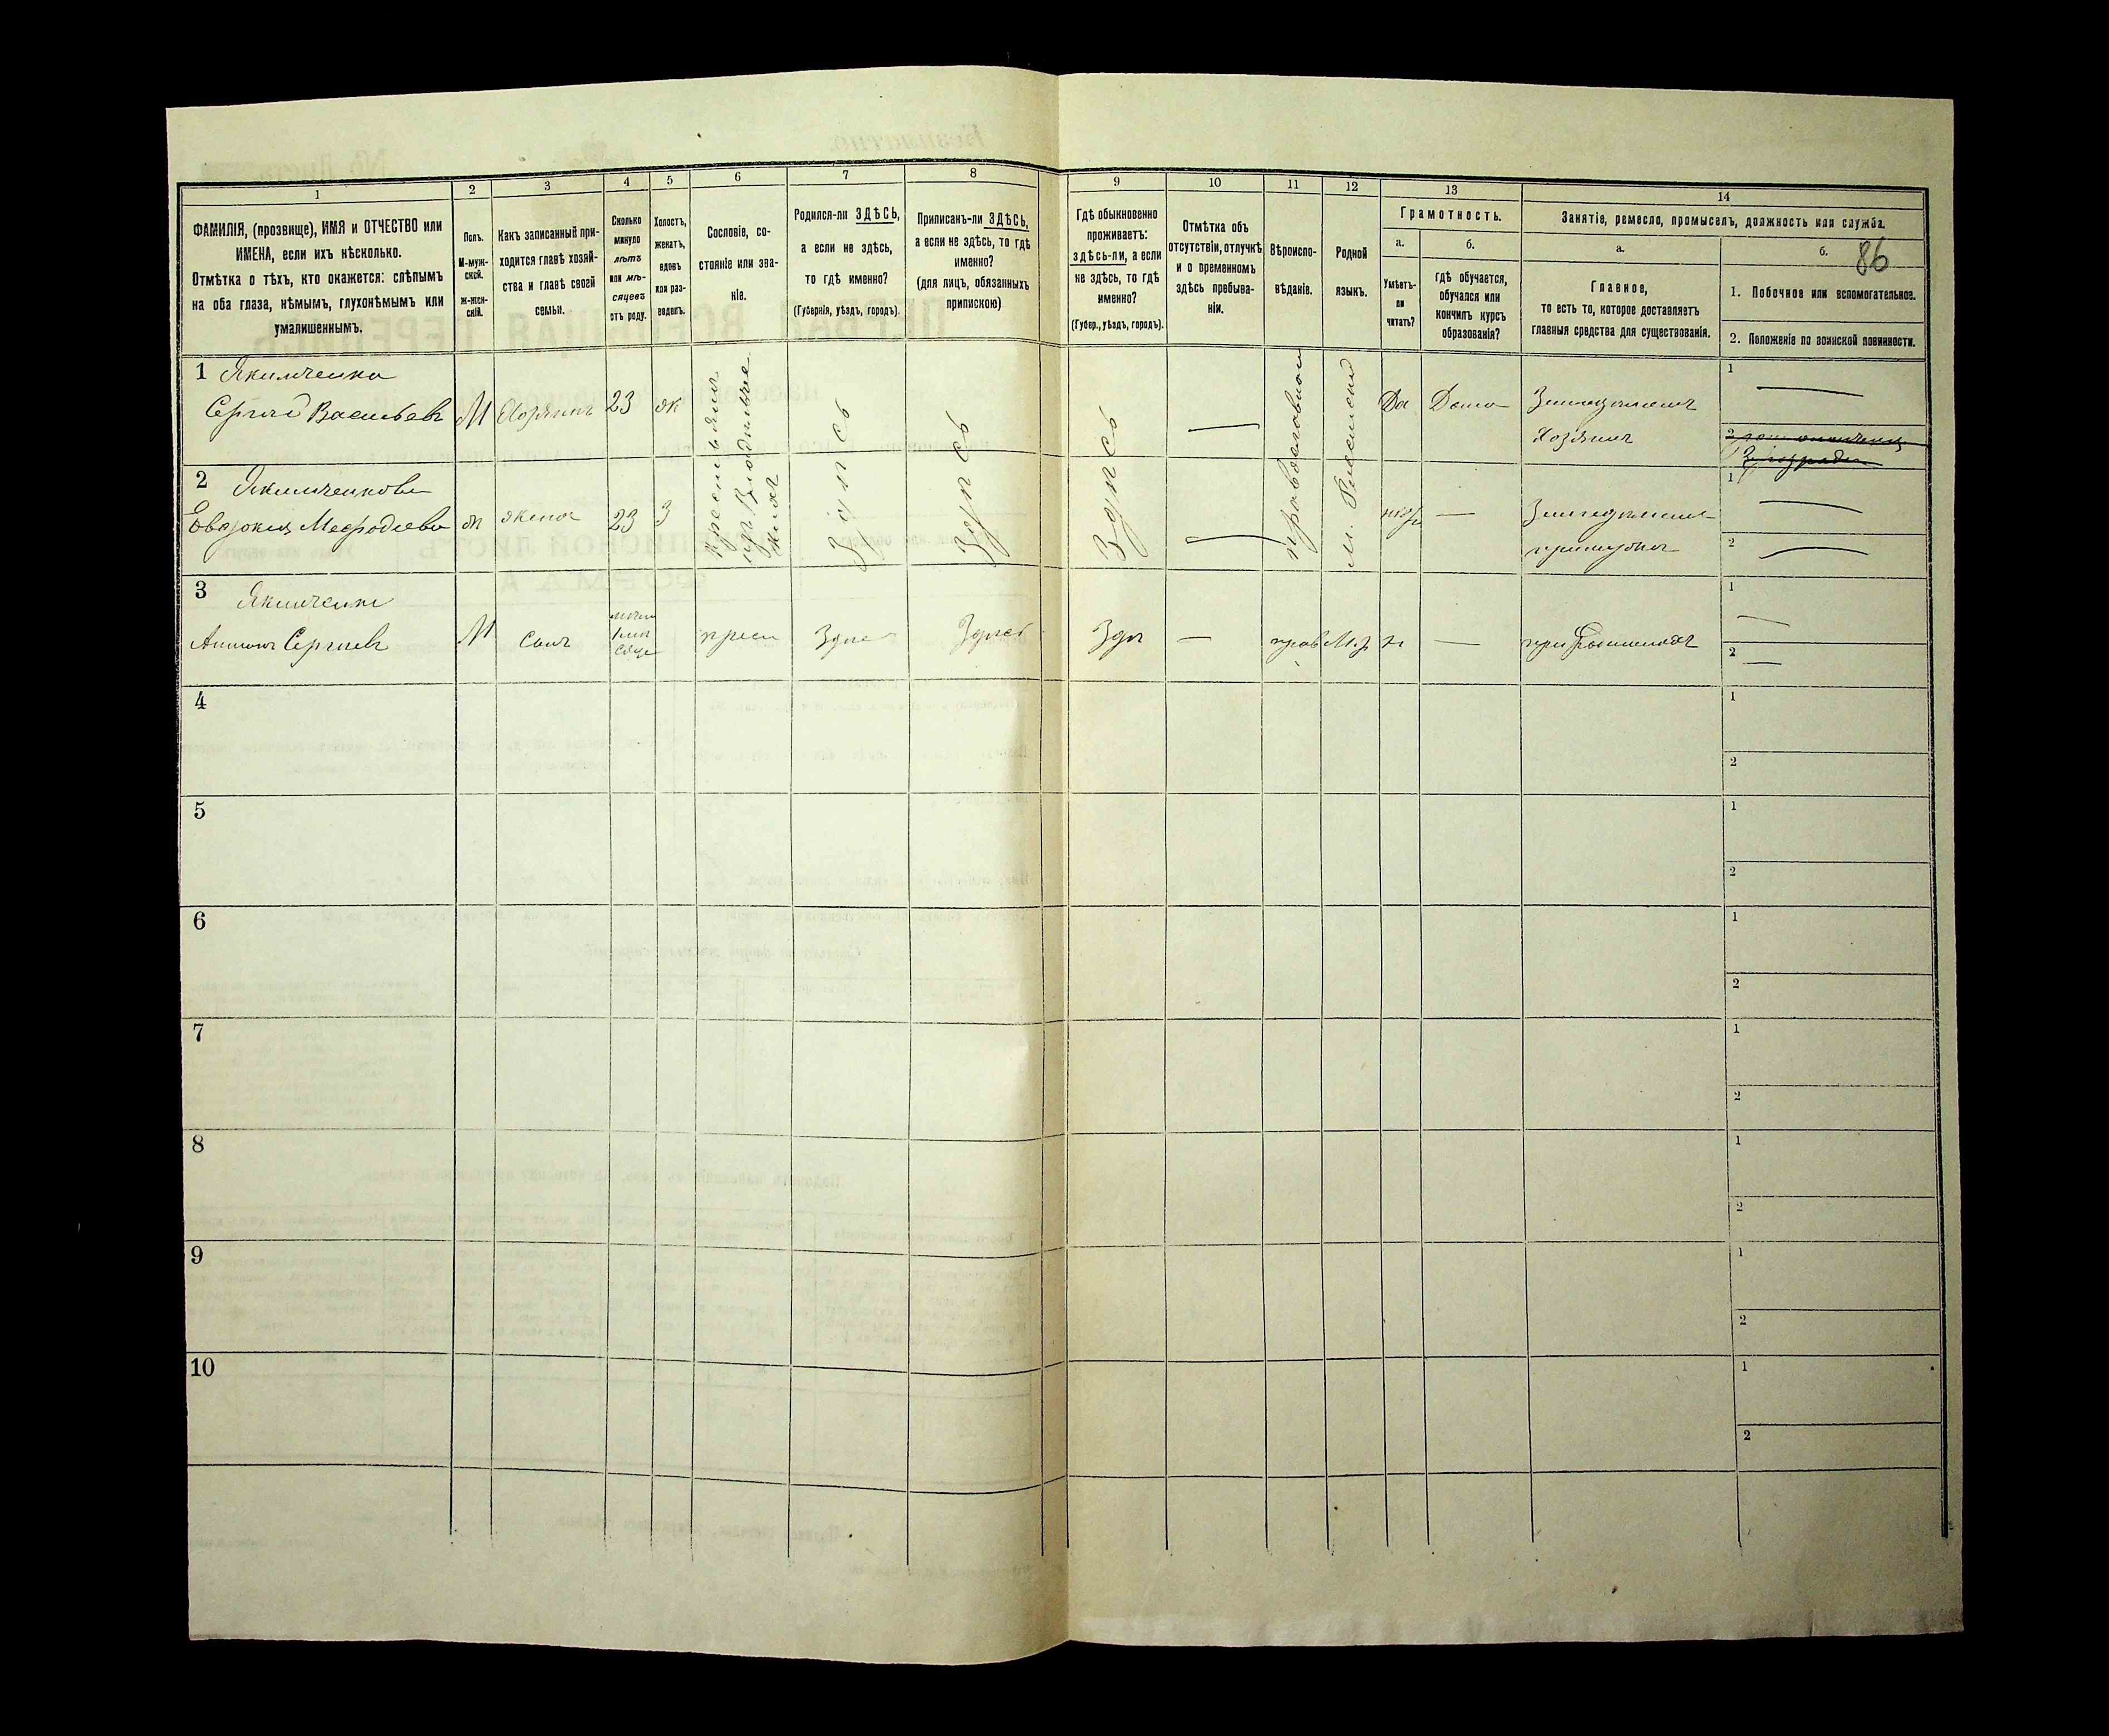 86
1 2 3 4 5 6 7 8 9 10 11 12 13 14
ФАМИЛІЯ, (прозвище), ИМЯ и ОТЧЕСТВО или
ИМЕНА, если ихъ нѣсколько.
Отмѣтка о тѣхъ, кто окажется: слѣпымъ
на оба глаза, нѣмымъ, глухонѣмымъ или
умалишеннымъ.
Полъ.
М-муж-
ской.
ж-жен-
скій.
Какъ записанный при-
ходится главѣ хозяй-
ства и главѣ своей
семьи.
Сколько
минуло
лѣтъ
или мѣ-
сяцевъ
отъ роду.
Холостъ,
женатъ,
вдовъ
или раз-
веденъ.
Сословіе, со-
стояніе или зва-
ніе.
Родился-ли ЗДѢСЬ,
а если не здѣсь,
то гдѣ именно?
(Губернія, уѣздъ, городъ).
Приписанъ-ли ЗДѢСЬ,
а если не здѣсь, то гдѣ
именно?
(для лицъ, обязанныхъ
припискою)
Гдѣ обыкновенно
проживаетъ:
здѣсь-ли, а если
не здѣсь, то гдѣ
именно?
(Губер., уѣздъ, городъ).
Отмѣтка объ
отсутствіи, отлучкѣ
и о временномъ
здѣсь пребыва-
ніи.
Вѣроиспо-
вѣданіе.
Родной
языкъ.
Грамотность.
а.
Умѣетъ-
ли
читать?
б.
гдѣ обучается,
обучался или
кончилъ курсъ
образованія?
Занятіе, ремесло, промыселъ, должность или служба.
а.
Главное,
то есть то, которое доставляетъ
главныя средства для существованія.
б.
1. Побочное или вспомогательное.
2. Положеніе по воинской повинности.
1 Якимченко
Сергѣй Васильевъ М Хозяинъ 23 ж Здѣсь Здѣсь Здѣсь — православное М. Россійскій Да Дома Земледѣлецъ
Хозяинъ
1 —
2
2 Якимченкова
Евдокия Мефодіева ж жена 23 З — —
1 —
2 —
3 Якимченко
Сергѣевъ М сынъ крест Здѣсь Здѣсь Здѣ — прав М. р н —
1 —
2 —
4 1
2
5 1
2
6 1
2
7 1
2
8 1
2
9 1
2
10 1
2